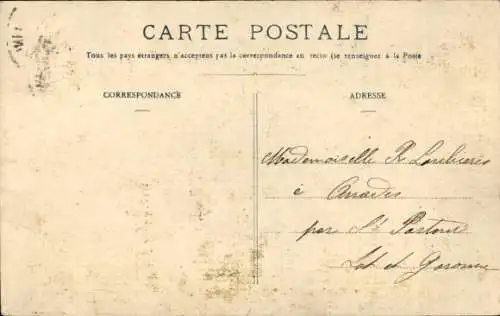 CARTE POSTALE
Tous les pays étrangers n'acceptent pas la correspondance au recto (se renseigner à la Poste
CORRESPONDANCE
ADRESSE
Mademoiselle R
à
par St Pastour
Lot et Garonne